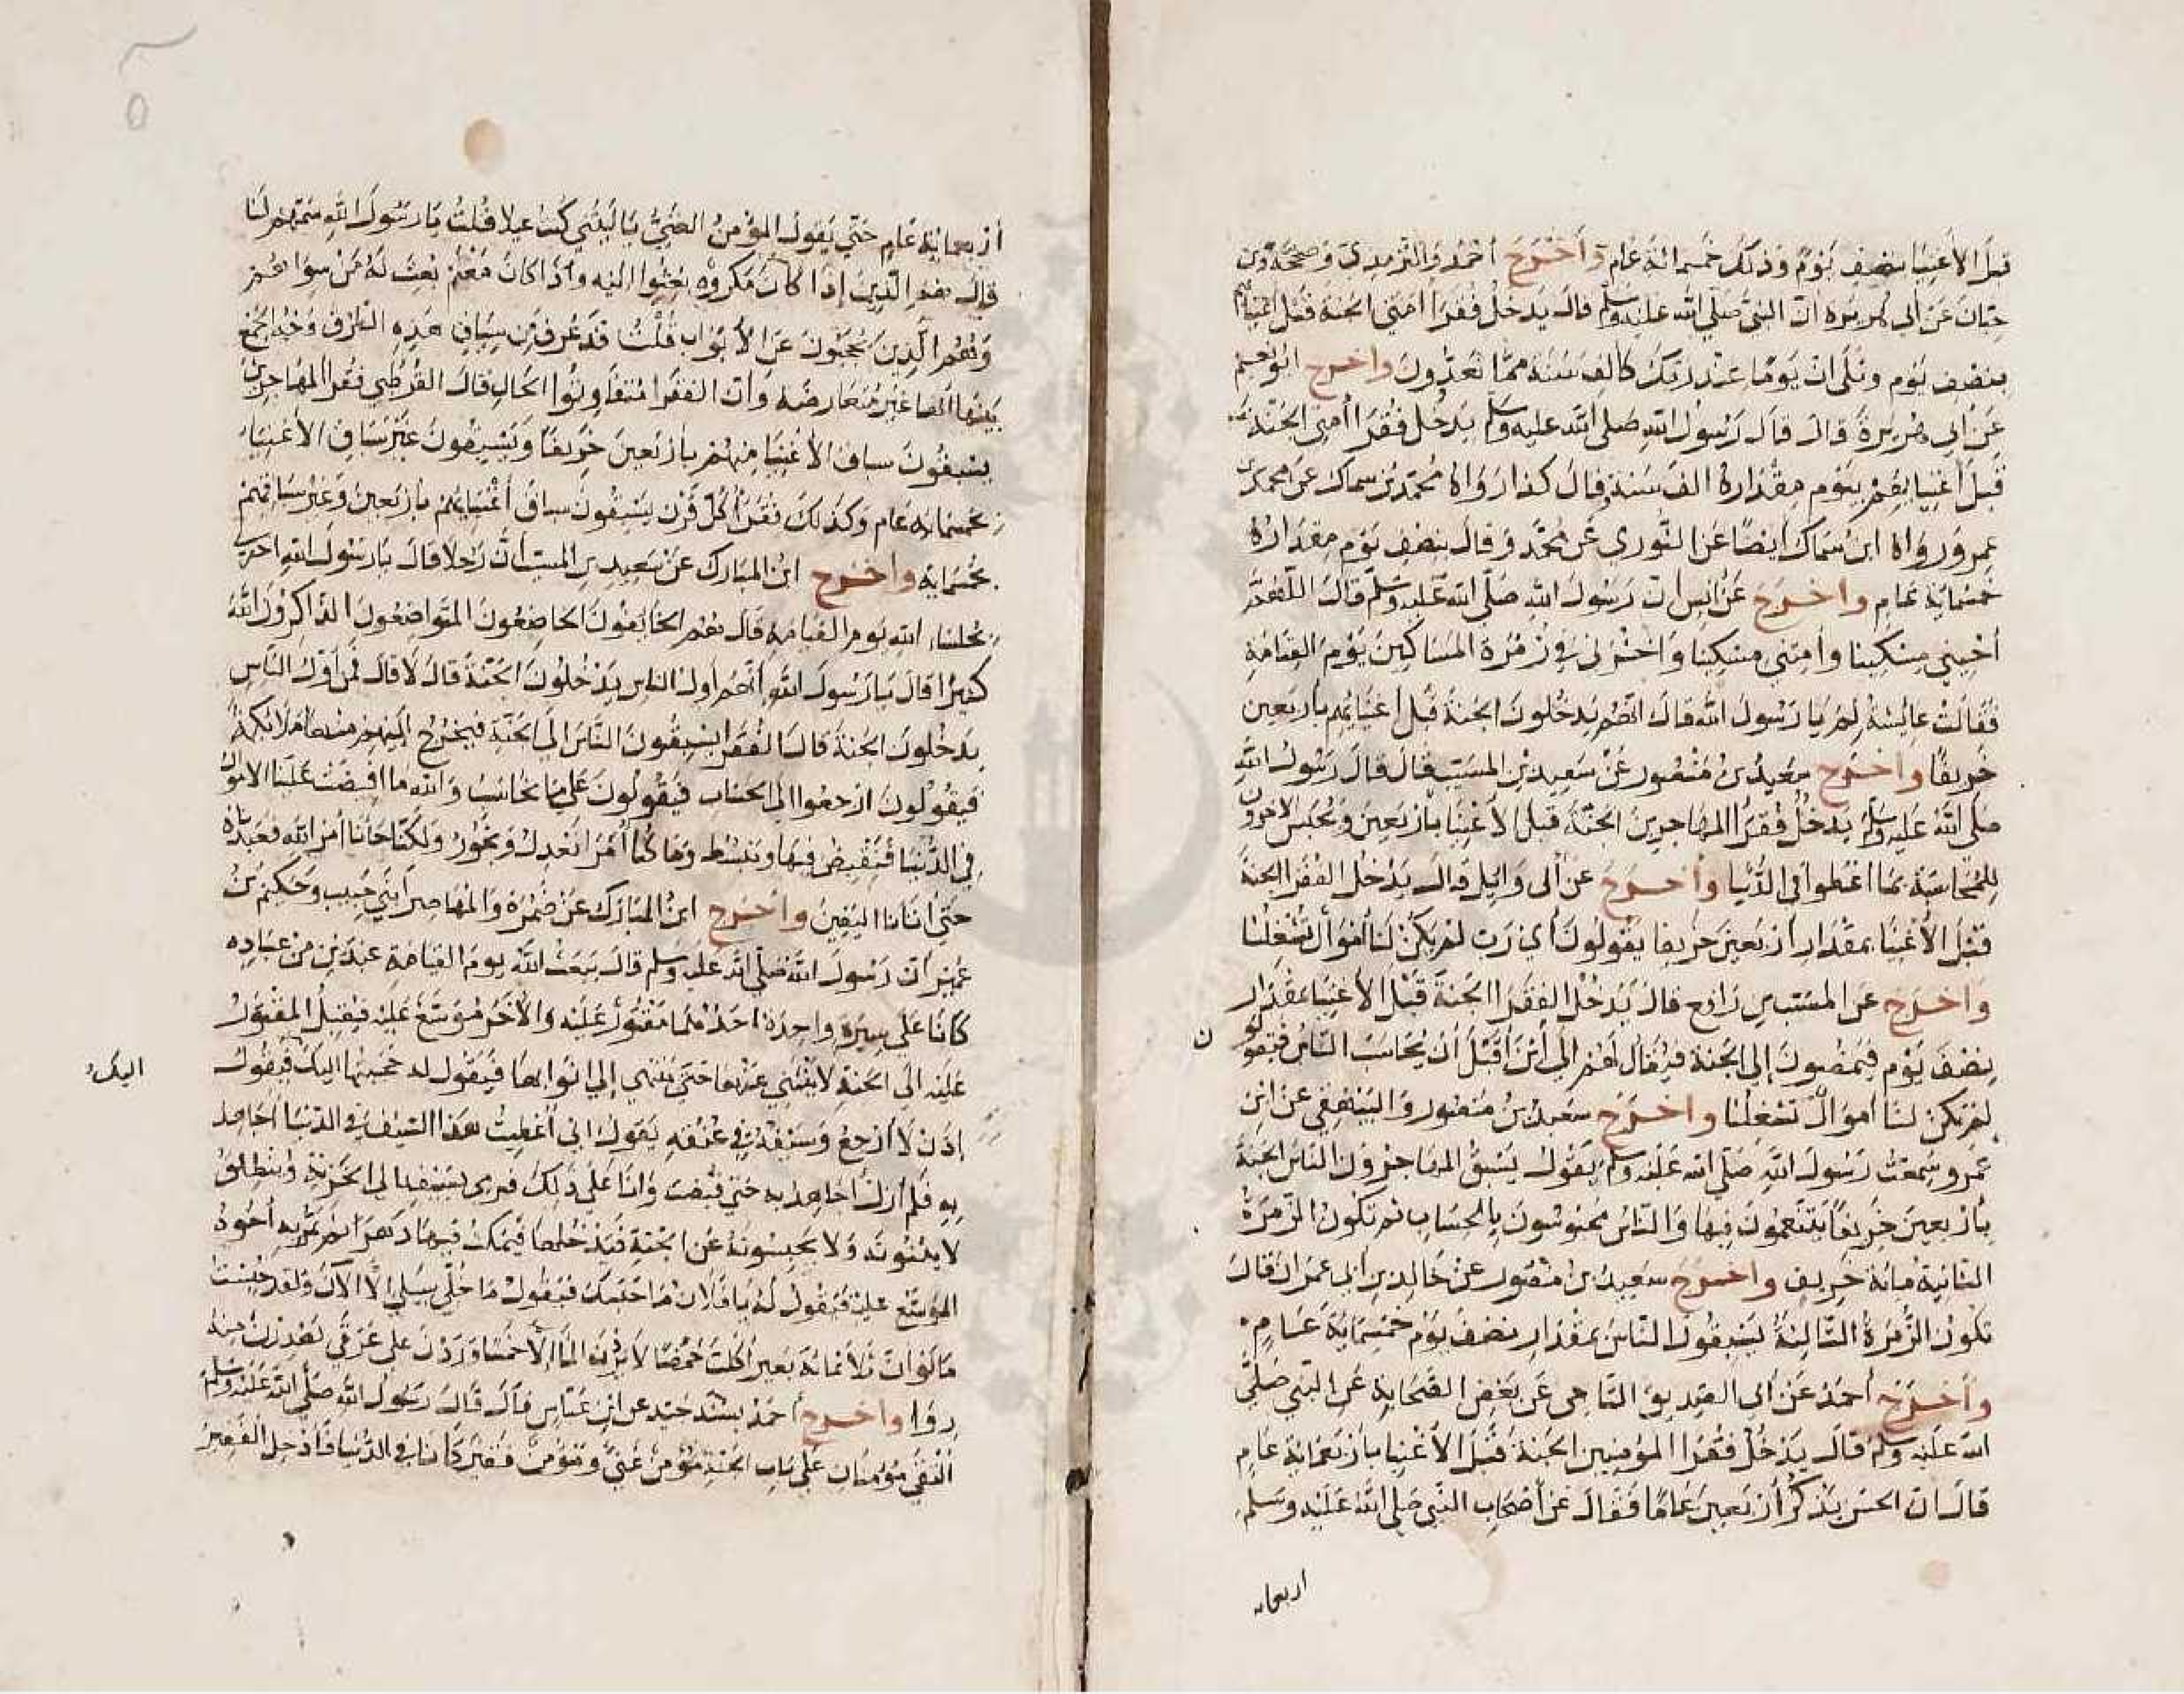 قبل الأغنيا بنصف يوم وذلك خمسمائة عام وأخرج أحمد والترمذي وصححه وابن
حبان عن أبي هريرة أن النبي صلى الله عليه وسلم قال يدخل فقرا أمتي الجنة قبل أغنيائهم
بنصف يوم وتلى وان يوما عند ربك كالف سنة مما تعدون واخرج ابو نعيم
عن أبي هريرة قال قال رسول الله صلى الله عليه وسلم يدخل فقرا أمتي الجنة
قبل أغنيايهم بيوم مقداره الف سنة وقال كذا رواه محمد بن سماك عن محمد بن
عمرو ورواه ابن سماك أيضا عن الثوري عن محمد وقال بنصف يوم مقداره
خمسماية عام واخرج عن انس ان رسول الله صلى الله عليه وسلم قال اللهم
أحيني مسكينا وأمتني مسكينا واحشرني في زمرة المساكين يوم القيامة
فقالت عايشة لم يا رسول الله قال انهم يدخلون الجنة قبل أغنيايهم بأربعين
خريفا واخرج سعيد بن منصور عن سعيد بن المسيب قال قال رسول الله
صلى الله عليه وسلم يدخل فقرا المهاجرين الجنة قبل الأغنيا بأربعين ويحبس الآخرون
للمحاسبة بما اعطوا في الدنيا وأخرج عن أبي وايل قال يدخل الفقرا الجنة
قبل الأغنيا بمقدار أربعين خريفا يقولون أي رب لم يكن لنا أموال تشغلنا
واخرج عن المسيب بن رافع قال يدخل الفقرا الجنة قبل الأغنيا بمقدار
نصف يوم فيمضون إلى الجنة فيقال لهم إلى أين قبل أن يحاسب الناس فيقولون
لم تكن لنا أموال تشغلنا واخرج سعيد بن منصور والبيهقي عن ابن
عمرو سمعت رسول الله صلى الله عليه وسلم يقول يسبق المهاجرون الناس الجنة
بأربعين خريفا يتنعمون فيها والناس محبوسون بالحساب ثم تكون الزمرة
الثانية مائة خريف واخرج سعيد بن منصور عن خالد بن أبي عمران قال
تكون الزمرة الثالثة يسبقون الناس بمقدار نصف يوم خمسماية عام
وأخرج أحمد عن أبي الصديق الناجي عن بعض الصحابة عن النبي صلى
الله عليه وسلم قال يدخل فقرا المؤمنين الجنة قبل الأغنيا بأربعماية عام
قال ان الحسن يذكر أربعين عاما فقال عن أصحاب النبي صلى الله عليه وسلم
اربعمايه
أربعماية عام حتى يقول المؤمن الغني يا ليتني كنت عيلا قلت يا رسول الله سمهم لنا
قال هم الذين إذا كان مكروه بعثوا إليه وإذا كان مغنم بعث له من سواهم
وهم الذين يحجبون عن الأبواب قلت قد عرف من سياق هذه الطرق وجه الجمع
بينها أنها غير متعارضة وأن الفقرا متفاوتوا الحال قال القرطبي فقرا المهاجرين
يسبقون سباق الأغنيا منهم بأربعين خريفا ويسبقون غير سباق الأغنيا
بخمسمايه عام وكذلك فقرا كل قرن يسبقون سباق أغنيايهم بأربعين وغير سباقهم
بخمسماية واخرج ابن المبارك عن سعيد بن المسيب أن رجلا قال يا رسول الله اخبرني
بجلساء الله يوم القيامة قال هم الخائفون الخاضعون المتواضعون الذاكرون الله
كثيرا قال يا رسول الله أنهم أول الناس يدخلون الجنة قال لا قال فمن أول الناس
يدخلون الجنة قال الفقرا يسبقون الناس إلى الجنة فيخرج إليهم منها ملائكة
فيقولون ارجعوا إلى الحساب فيقولون على ما نحاسب والله ما افيضت علينا الأموال
في الدنيا فنقبض فيها ونبسط وما كنا أمرا نعدل ونجور ولكنا جانا أمر الله فعبدناه
حتى اتانا اليقين واخرج ابن المبارك عن ضمرة والمهاصر ابني حبيب وحكيم بن
عمير أن رسول الله صلى الله عليه وسلم قال يبعث الله يوم القيامة عبدين من عباده
كانا على سيرة واحدة احدهما مقتور عليه والآخر موسع عليه فيقبل المقتور
عليه إلى الجنة لا ينثني عنها حتى ينتهي إلى أبوابها فيقول له حجبتها اليك فيقول
اليك
إذن لا أرجع وسيفه في عنقه يقول اني أعطيت هذا السيف في الدنيا أجاهد
به فلم أزل أجاهد به حتى قبضت وانا على ذلك فيرمي بسيفه إلى الخزنة وينطلق
لا يثنونه ولا يحبسونه عن الجنة فيدخلها فيمكث فيها دهرا ثم يمر به أخوه
الموسع عليه فيقول له يا فلان ما احتبسك فيقول ما خلي سبيلي إلا الآن ولقد حبست
ما لو ان ثلاثمائة بعير أكلت حمضا لا يردن الماء إلا خمسا وردن على عرقي لصدرن منه
روا واخرج أحمد بسند جيد عن ابن عباس قال قال رسول الله صلى الله عليه وسلم
التقى مؤمنان على باب الجنة مؤمن غني ومؤمن فقير كانا في الدنيا فأدخل الفقير